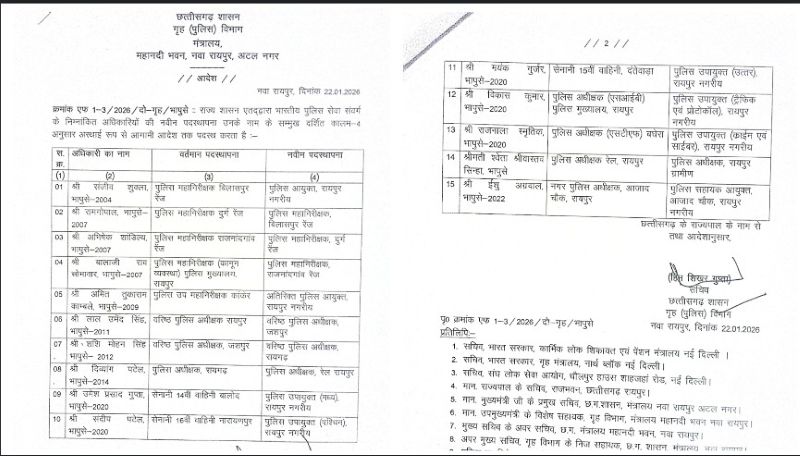 छत्तीसगढ़ शासन
गृह (पुलिस) विभाग
मंत्रालय,
महानदी भवन, नवा रायपुर, अटल नगर
// आदेश //
नवा रायपुर, दिनांक 22.01.2026
क्रमांक एफ 1-3/2026/दो-गृह/भापुसे : राज्य शासन एतद्द्वारा भारतीय पुलिस सेवा संवर्ग
के निम्नांकित अधिकारियों की नवीन पदस्थापना उनके नाम के सम्मुख दर्शित कालम-4
अनुसार अस्थाई रूप से आगामी आदेश तक पदस्थ करता है :-
स. क्र. अधिकारी का नाम वर्तमान पदस्थापना नवीन पदस्थापना
(1) (2) (3) (4)
01 श्री संजीव शुक्ला, पुलिस महानिरीक्षक बिलासपुर पुलिस आयुक्त, रायपुर
भापुसे-2004 रेंज नगरीय
02 श्री रामगोपाल, भापुसे- पुलिस महानिरीक्षक दुर्ग रेंज पुलिस महानिरीक्षक,
2007 बिलासपुर रेंज
03 श्री अभिषेक शांडिल्य, पुलिस महानिरीक्षक राजनांदगांव पुलिस महानिरीक्षक, दुर्ग
भापुसे-2007 रेंज रेंज
04 श्री बालाजी राव पुलिस महानिरीक्षक (कानून पुलिस महानिरीक्षक,
सोमावार, भापुसे-2007 व्यवस्था) पुलिस मुख्यालय, राजनांदगांव रेंज
रायपुर
05 श्री अमित तुकाराम पुलिस उप महानिरीक्षक कांकेर अतिरिक्त पुलिस आयुक्त,
काम्बले, भापुसे-2009 रायपुर नगरीय
06 श्री लाल उमेद सिंह, वरिष्ठ पुलिस अधीक्षक रायपुर वरिष्ठ पुलिस अधीक्षक,
भापुसे-2011 जशपुर
07 श्री शशि मोहन सिंह वरिष्ठ पुलिस अधीक्षक, जशपुर वरिष्ठ पुलिस अधीक्षक,
भापुसे- 2012 रायगढ़
08 श्री दिव्यांग पटेल, पुलिस अधीक्षक, रायगढ़ पुलिस अधीक्षक, रेल रायपुर
भापुसे-2014
09 श्री उमेश प्रसाद गुप्ता, सेनानी 14वीं वाहिनी बालोद पुलिस उपायुक्त (मध्य),
भापुसे-2020 रायपुर नगरीय
10 श्री संदीप पटेल, सेनानी 16वीं वाहिनी नारायणपुर पुलिस उपायुक्त (पश्चिम),
भापुसे-2020 रायपुर नगरीय
// 2 //
11 श्री मयंक गुर्जर, सेनानी 15वीं वाहिनी, दंतेवाड़ा पुलिस उपायुक्त (उत्तर),
भापुसे-2020 रायपुर नगरीय
12 श्री विकास कुमार, पुलिस अधीक्षक (एसआईबी) पुलिस उपायुक्त (ट्रैफिक
भापुसे-2020 पुलिस मुख्यालय, रायपुर एवं प्रोटोकॉल), रायपुर
नगरीय
13 श्री राजनाला स्मृतिक, पुलिस अधीक्षक (एसटीएफ) बघेरा पुलिस उपायुक्त (क्राईम एवं
भापुसे-2020 साईबर), रायपुर नगरीय
14 श्रीमती श्वेता श्रीवास्तव पुलिस अधीक्षक रेल, रायपुर पुलिस अधीक्षक, रायपुर
सिन्हा, भापुसे ग्रामीण
15 श्री ईशु अग्रवाल, नगर पुलिस अधीक्षक, आजाद पुलिस सहायक आयुक्त,
भापुसे-2022 चौक, रायपुर आजाद चौक, रायपुर
नगरीय
छत्तीसगढ़ के राज्यपाल के नाम से
तथा आदेशानुसार,
(हिम शिखर गुप्ता)
सचिव
छत्तीसगढ़ शासन
गृह (पुलिस) विभाग
नवा रायपुर, दिनांक 22.01.2026
पृ0 क्रमांक एफ 1-3/2026/दो-गृह/भापुसे
प्रतिलिपि:-
1. सचिव, भारत सरकार, कार्मिक लोक शिकायत एवं पेंशन मंत्रालय नई दिल्ली ।
2. सचिव, भारत सरकार, गृह मंत्रालय, नार्थ ब्लॉक नई दिल्ली।
3. सचिव, संघ लोक सेवा आयोग, धौलपुर हाउस शाहजहां रोड, नई दिल्ली।
4. मान. राज्यपाल के सचिव, राजभवन, छत्तीसगढ़ रायपुर।
5. मान. मुख्यमंत्री जी के प्रमुख सचिव, छ.ग.शासन, मंत्रालय नवा रायपुर अटल नगर।
6. मान. उपमुख्यमंत्री के विशेष सहायक, गृह विभाग, मंत्रालय महानदी भवन नवा रायपुर।
7. मुख्य सचिव के अवर सचिव, छ.ग. मंत्रालय महानदी भवन, नवा रायपुर।
8. अपर मुख्य सचिव, गृह विभाग के निज सहायक, छ.ग. शासन, मंत्रालय, नवा रायपुर